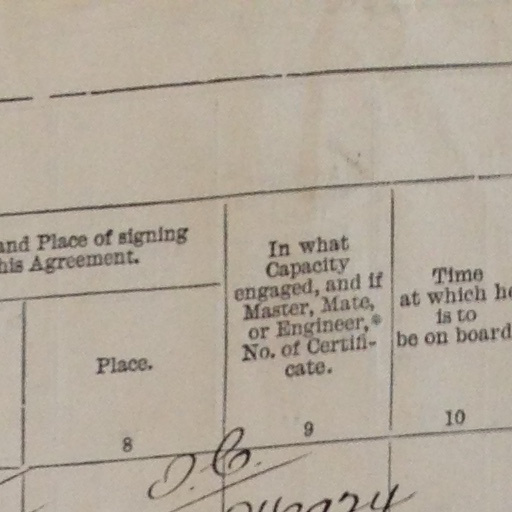 and Place of signing
his Agreement.
Place.
8
In what
Capacity
engaged, and if
Master, Mate,
or Engineer,*
No. of Certifi-
cate.
9
Time
at which he
is to
be on board
10